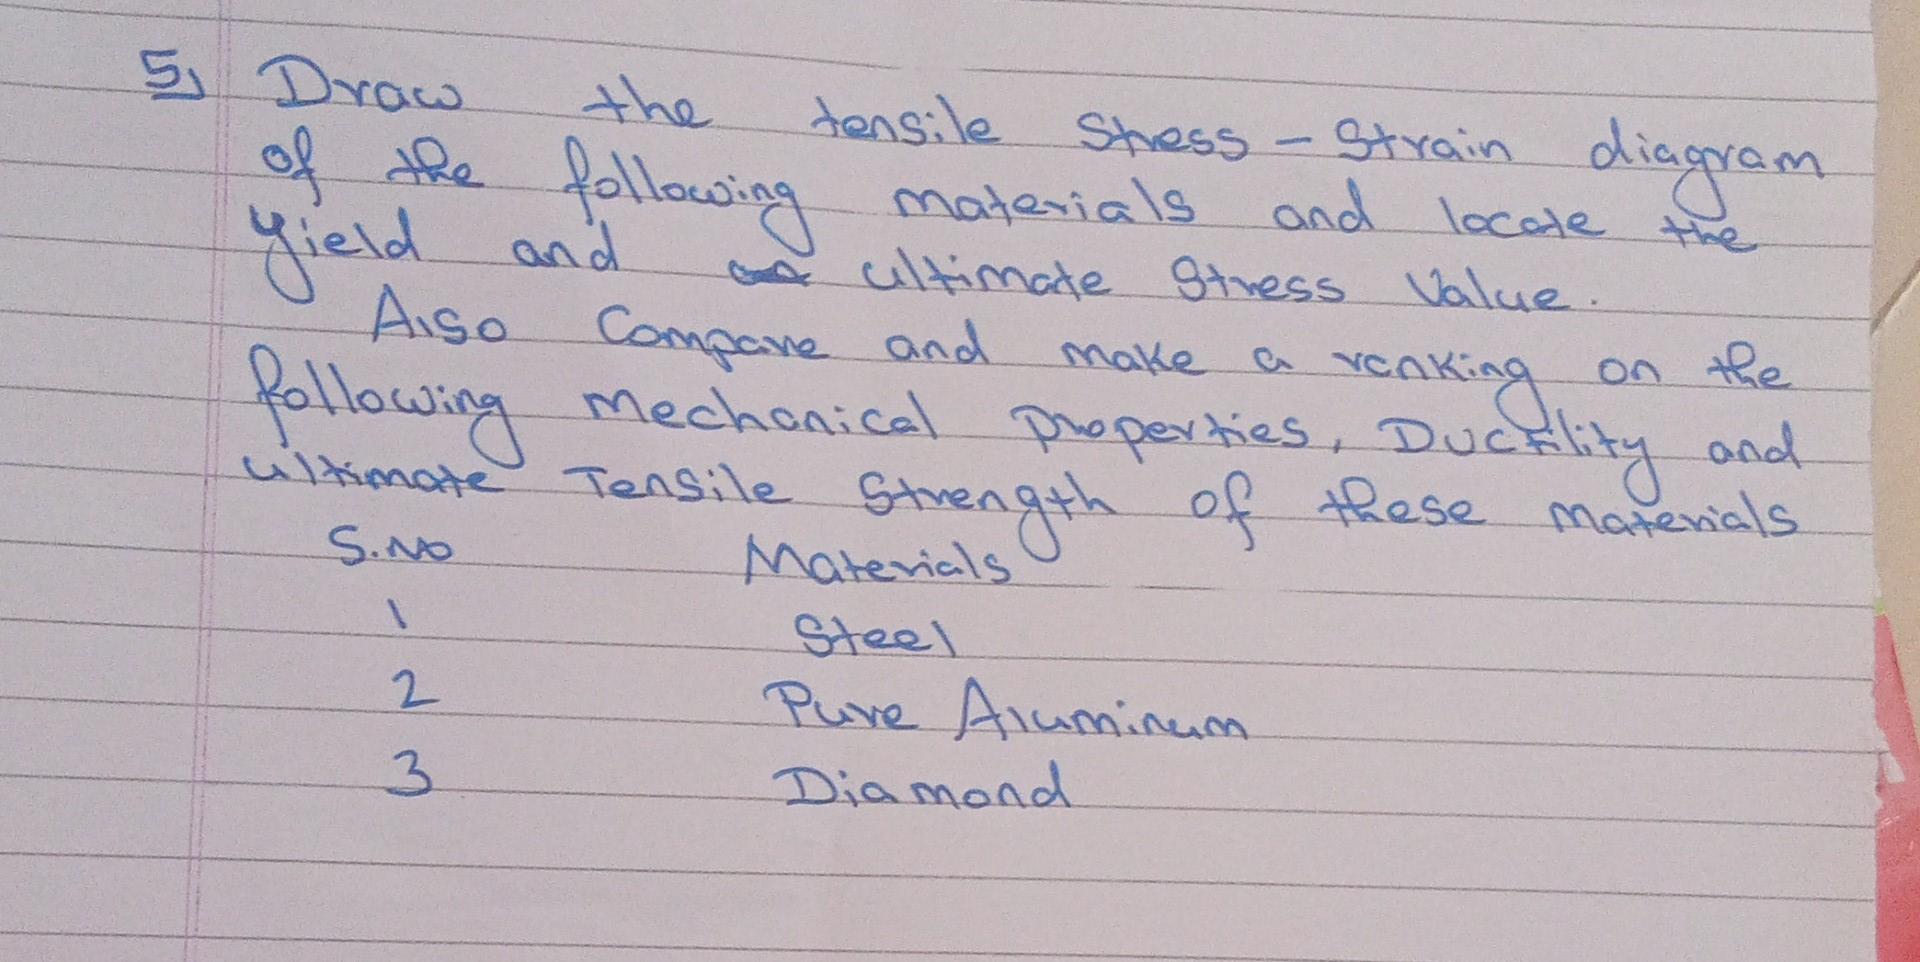 5) Draw the tensile Stress - Strain diagram
of the following materials and locate the
yield and ultimate Stress Value.
Also Compare and make a ranking on the
following mechanical properties, Ductility and
ultimate Tensile Strength of these materials
S.No Materials
1 Steel
2 Pure Aluminum
3 Diamond